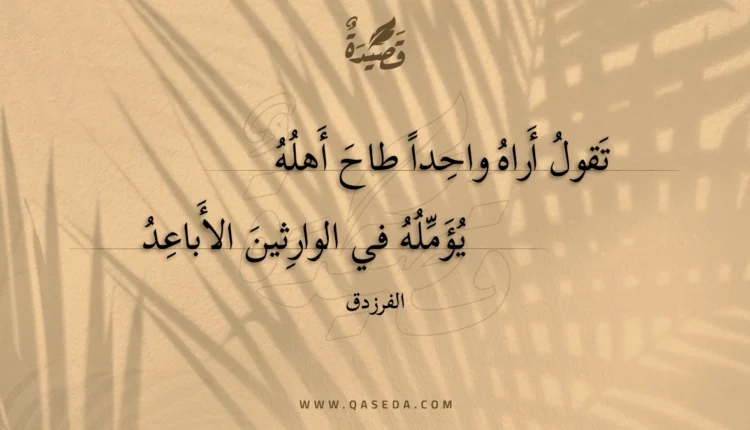 قَصِيْدَةٌ
تَقولُ أَراهُ واحِداً طاحَ أَهلُهُ
يُؤَمِّلُهُ في الوارِثينَ الأَباعِدُ
الفرزدق
WWW.QASEDA.COM